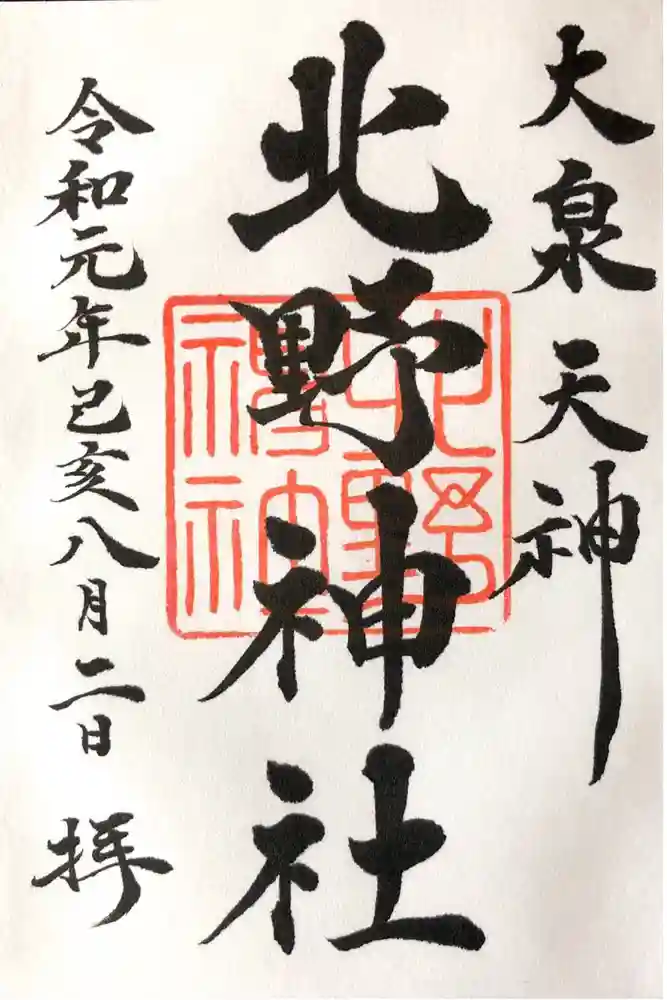 大泉天神
北野神社
令和元年己亥八月二日 拝